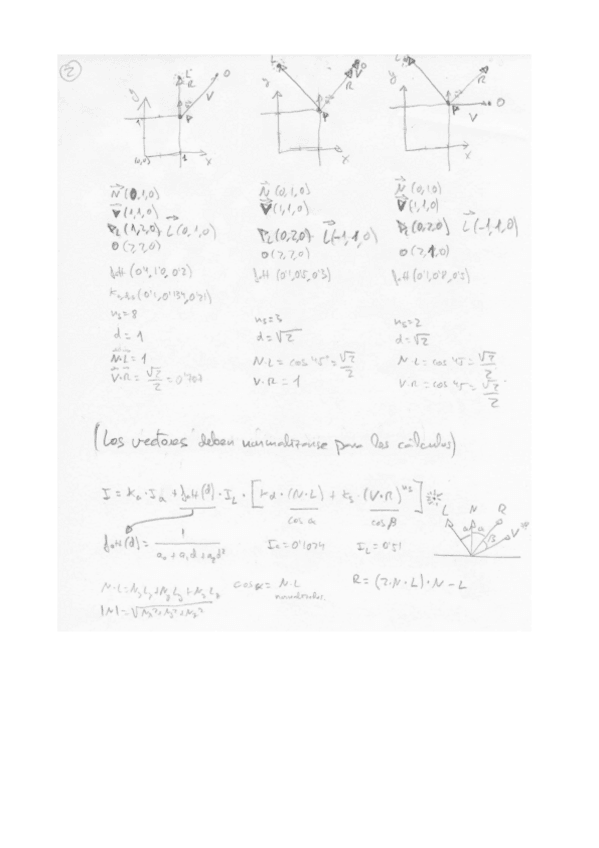 2
L R V O P N y x 1 (0,0) 1
L R O V P y x
L R O V P y x
N (0,1,0)
V (1,1,0)
PL (1,2,0) L (0,1,0)
O (2,2,0)
fatt (0'4, 1'0, 0'2)
ns=8
d = 1
N·L = 1
V·R = √2/2 = 0'707
N (0,1,0)
V (1,1,0)
PL (0,2,0) L (-1,1,0)
O (2,2,0)
fatt (0'1, 0'5, 0'3)
ns=3
d = √2
N·L = cos 45º = √2/2
V·R = 1
N (0,1,0)
V (1,1,0)
PL (0,2,0) L (-1,1,0)
O (2,1,0)
fatt
ns=2
d = √2
N·L = cos 45 = √2/2
V·R = cos 45 = √2/2
(Los vectores deben normalizarse para los cálculos)
I = Ka · Ia + fatt(d) · IL · [Kd · (N·L) + Ks · (V·R)^ns]
cos α cos β
fatt(d) = 1/(a0 + a1d + a2d²) Ia = 0'1074 IL = 0'51
L N R V α α β
N·L = NxLx + NyLy + NzLz cos α = N·L normalizados. R = (2·N·L)·N - L
|N| = √Nx² + Ny² + Nz²